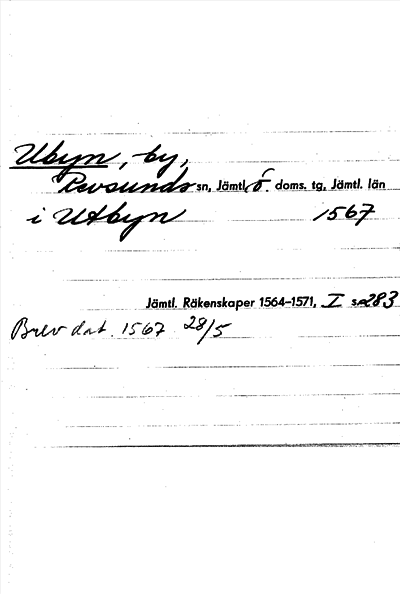 Ubyn, by,
Revsunds sn, Jämtl. ö. doms. tg, Jämtl. län
i Utbyn 1567
Jämtl. Räkenskaper 1564–1571, I s. 283
Brev dat. 1567 28/5